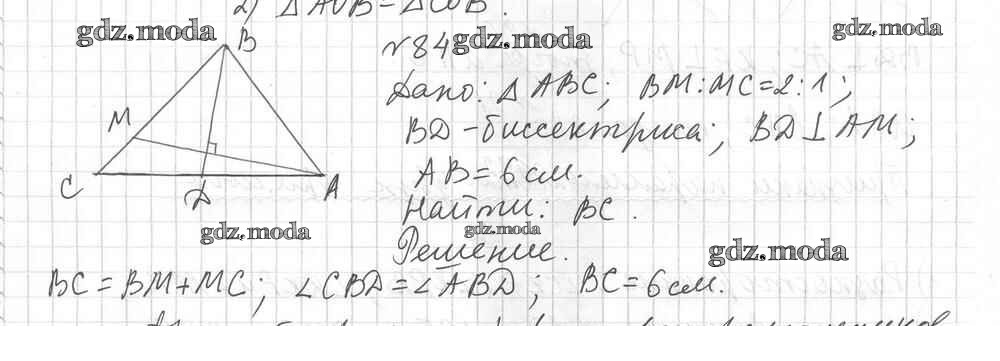 2) △AOB=△COB.
gdz.moda
gdz.moda
gdz.moda
B
M
C
D
A
№84
Дано: △ABC; BM:MC=2:1;
BD-биссектриса; BD⊥AM;
AB=6см.
Найти: BC.
gdz.moda
gdz.moda
Решение.
gdz.moda
BC=BM+MC; ∠CBD=∠ABD; BC=6см.